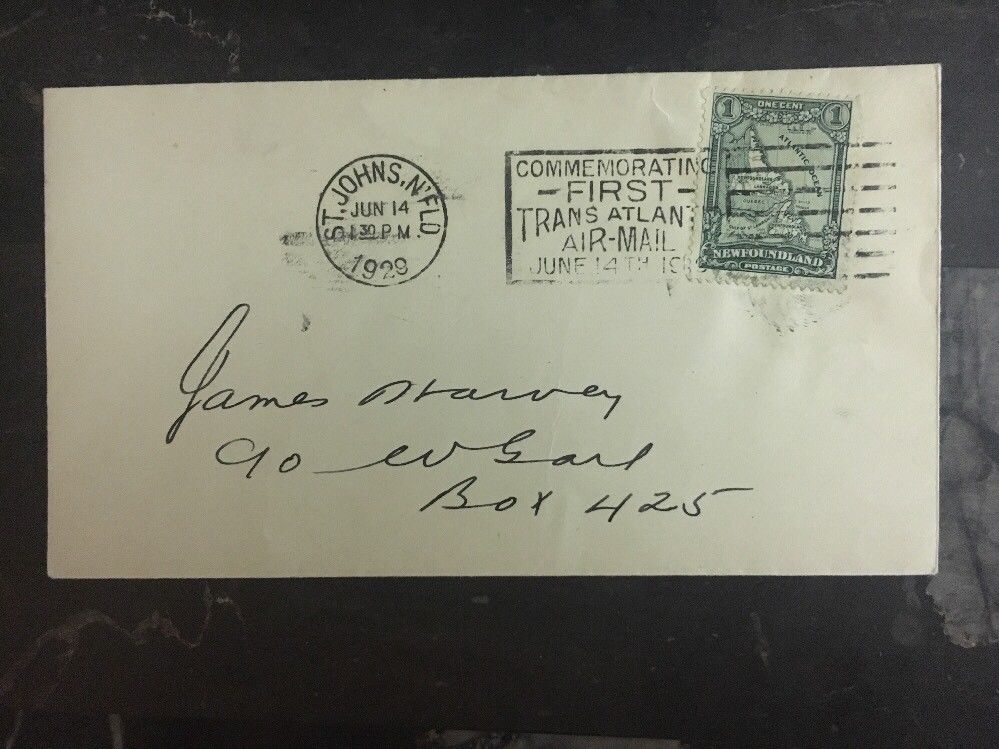 ST. JOHNS, N'FLD.
JUN 14
1 30 P.M.
1929
COMMEMORATING
-FIRST-
TRANS ATLANT
AIR-MAIL
JUNE 14TH 19
1 ONE CENT 1
ATLANTIC OCEAN
QUEBEC
NEWFOUNDLAND
POSTAGE
James Harvey
c/o W Earl
Box 425